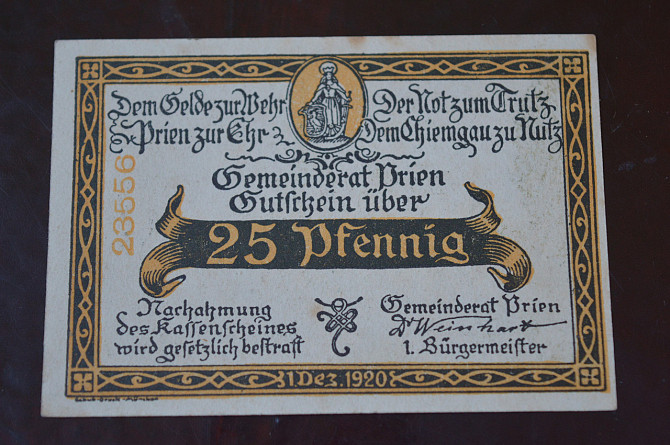 Dem Gelde zur Wehr
Der Not zum Trutz
Prien zur Ehr
Dem Chiemgau zu Nutz
Gemeinderat Prien
Gutschein über
25 Pfennig
23556
Nachahmung
des Kassenscheines
wird gesetzlich bestraft
Gemeinderat Prien
Dr Weinhart
1. Bürgermeister
1 Dez. 1920